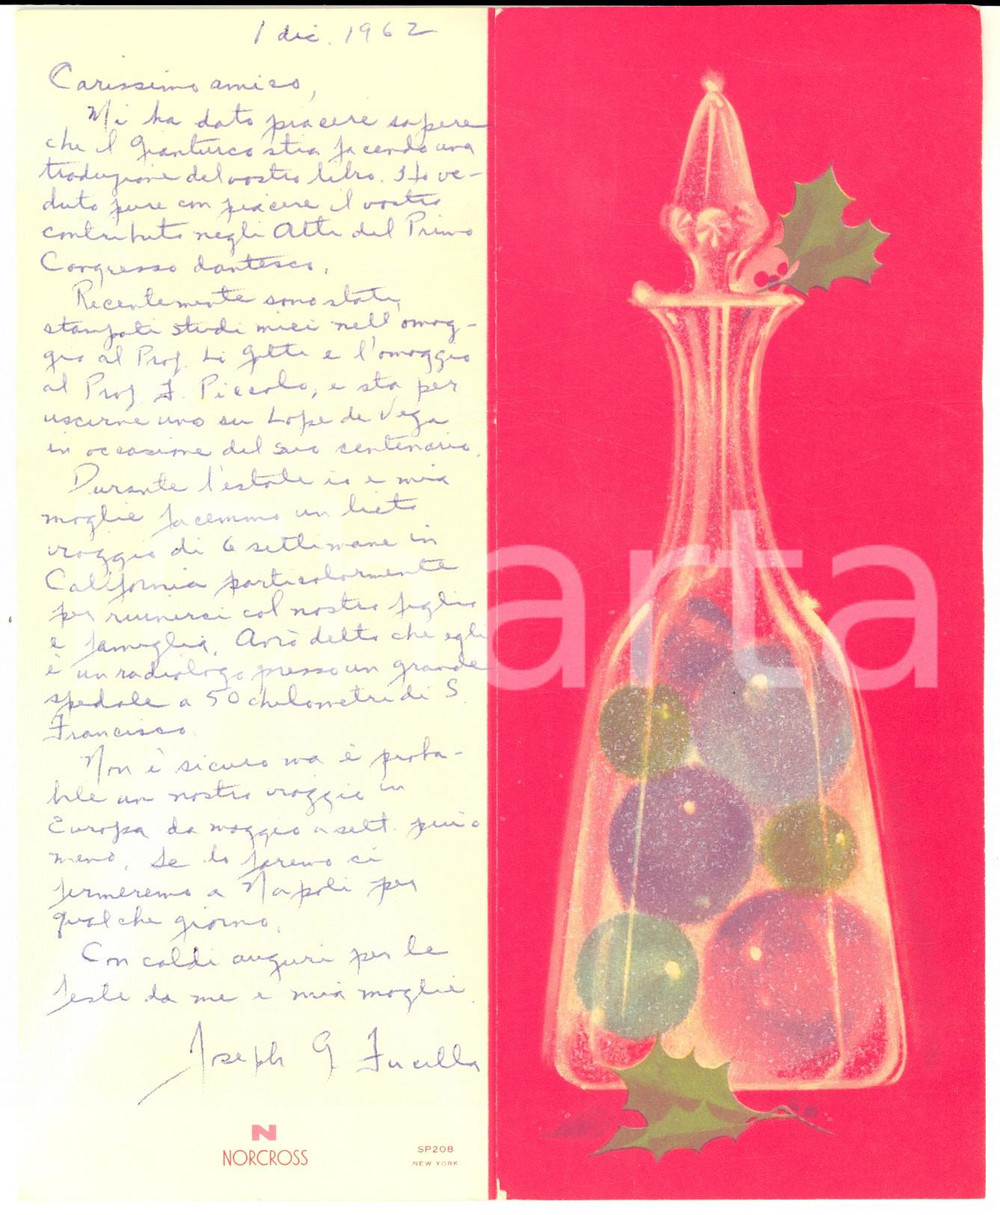 1 dic. 1962
Carissimo amico,
Mi ha dato piacere sapere
che il Gianturco stia facendo una
traduzione del vostro libro. Ho ve-
duto pure con piacere il vostro
contributo negli Atti del Primo
Congresso dantesco.
Recentemente sono stati
stampati studi miei nell'omag-
gio al Prof. Li Gotti e l'omaggio
al Prof. F. Piccolo, e sta per
uscirne uno su Lope de Vega
in occasione del suo centenario.
Durante l'estate io e mia
moglie facemmo un lieto
viaggio di 6 settimane in
California particolarmente
per riunirci col nostro figlio
e famiglia. Avrò detto che egli
è un radiologo presso un grande
spedale a 50 chilometri di S.
Francisco.
Non è sicuro ma è proba-
bile un nostro viaggio in
Europa da maggio a sett. più o
meno. Se lo faremo ci
fermeremo a Napoli per
qualche giorno.
Con caldi auguri per le
feste da me e mia moglie
Joseph G Fucilla
N
NORCROSS
SP208
NEW YORK
charta